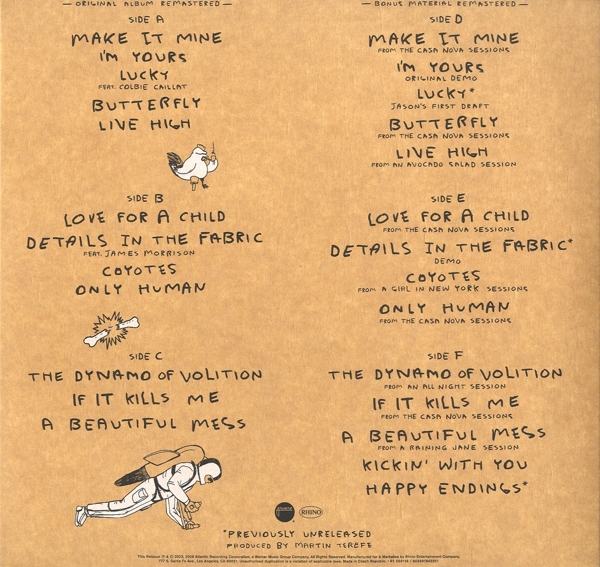 — ORIGINAL ALBUM REMASTERED —
SIDE A
MAKE IT MINE
I'M YOURS
LUCKY
FEAT. COLBIE CAILLAT
BUTTERFLY
LIVE HIGH
SIDE B
LOVE FOR A CHILD
DETAILS IN THE FABRIC
FEAT. JAMES MORRISON
COYOTES
ONLY HUMAN
SIDE C
THE DYNAMO OF VOLITION
IF IT KILLS ME
A BEAUTIFUL MESS
— BONUS MATERIAL REMASTERED —
SIDE D
MAKE IT MINE
FROM THE CASA NOVA SESSIONS
I'M YOURS
ORIGINAL DEMO
LUCKY*
JASON'S FIRST DRAFT
BUTTERFLY
FROM THE CASA NOVA SESSIONS
LIVE HIGH
FROM AN AVOCADO SALAD SESSION
SIDE E
LOVE FOR A CHILD
FROM THE CASA NOVA SESSIONS
DETAILS IN THE FABRIC*
DEMO
COYOTES
FROM A GIRL IN NEW YORK SESSIONS
ONLY HUMAN
FROM THE CASA NOVA SESSIONS
SIDE F
THE DYNAMO OF VOLITION
FROM AN ALL NIGHT SESSION
IF IT KILLS ME
FROM THE CASA NOVA SESSIONS
A BEAUTIFUL MESS
FROM A RAINING JANE SESSION
KICKIN' WITH YOU
HAPPY ENDINGS*
RHINO
*PREVIOUSLY UNRELEASED
PRODUCED BY MARTIN TEREFE
This Release ℗ & © 2023, 2008 Atlantic Recording Corporation, a Warner Music Group Company. All Rights Reserved. Manufactured for & Marketed by Rhino Entertainment Company,
777 S. Santa Fe Ave., Los Angeles, CA 90021. Unauthorized duplication is a violation of applicable laws. Made in Czech Republic.